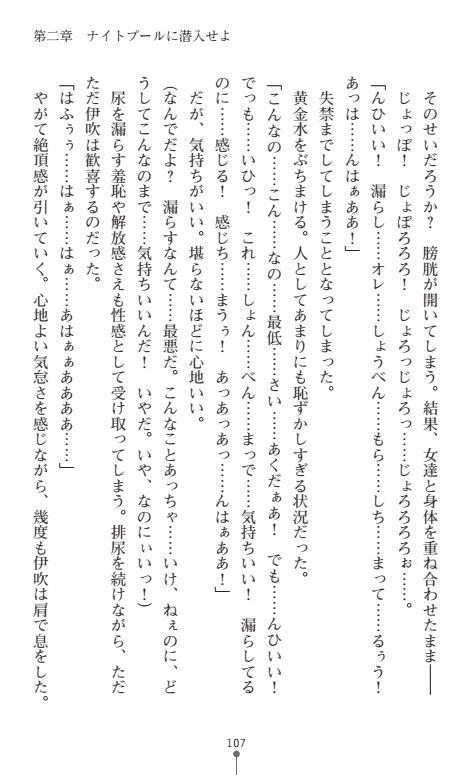 第二章　ナイトプールに潜入せよ
そのせいだろうか？　膀胱が開いてしまう。結果、女達と身体を重ね合わせたまま――
じょっぽ！　じょぽろろろ！　じょろっじょろっ……じょろろろろぉ……。
「んひいい！　漏らし……オレ……しょうべん……もら……しち……まって……るぅう！
あっは……んはぁああ！」
失禁までしてしまうこととなってしまった。
黄金水をぶちまける。人としてあまりにも恥ずかしすぎる状況だった。
「こんなの……こん……なの……最低……さい……あくだぁあ！　でも……んひいい！
でっも……いひっ！　これ……しょん……べん……まっで……気持ちいい！　漏らしてる
のに……感じる！　感じち……まうぅ！　あっあっあっ……んはぁああ！」
だが、気持ちがいい。堪らないほどに心地いい。
（なんでだよ？　漏らすなんて……最悪だ。こんなことあっちゃ……いけ、ねぇのに、ど
うしてこんなのまで……気持ちいいんだ！　いやだ。いや、なのにぃいっ！）
尿を漏らす羞恥や解放感さえも性感として受け取ってしまう。排尿を続けながら、ただ
ただ伊吹は歓喜するのだった。
「はふぅぅ……はぁ……はぁ……あはぁぁああああ……」
やがて絶頂感が引いていく。心地よい気怠さを感じながら、幾度も伊吹は肩で息をした。
107